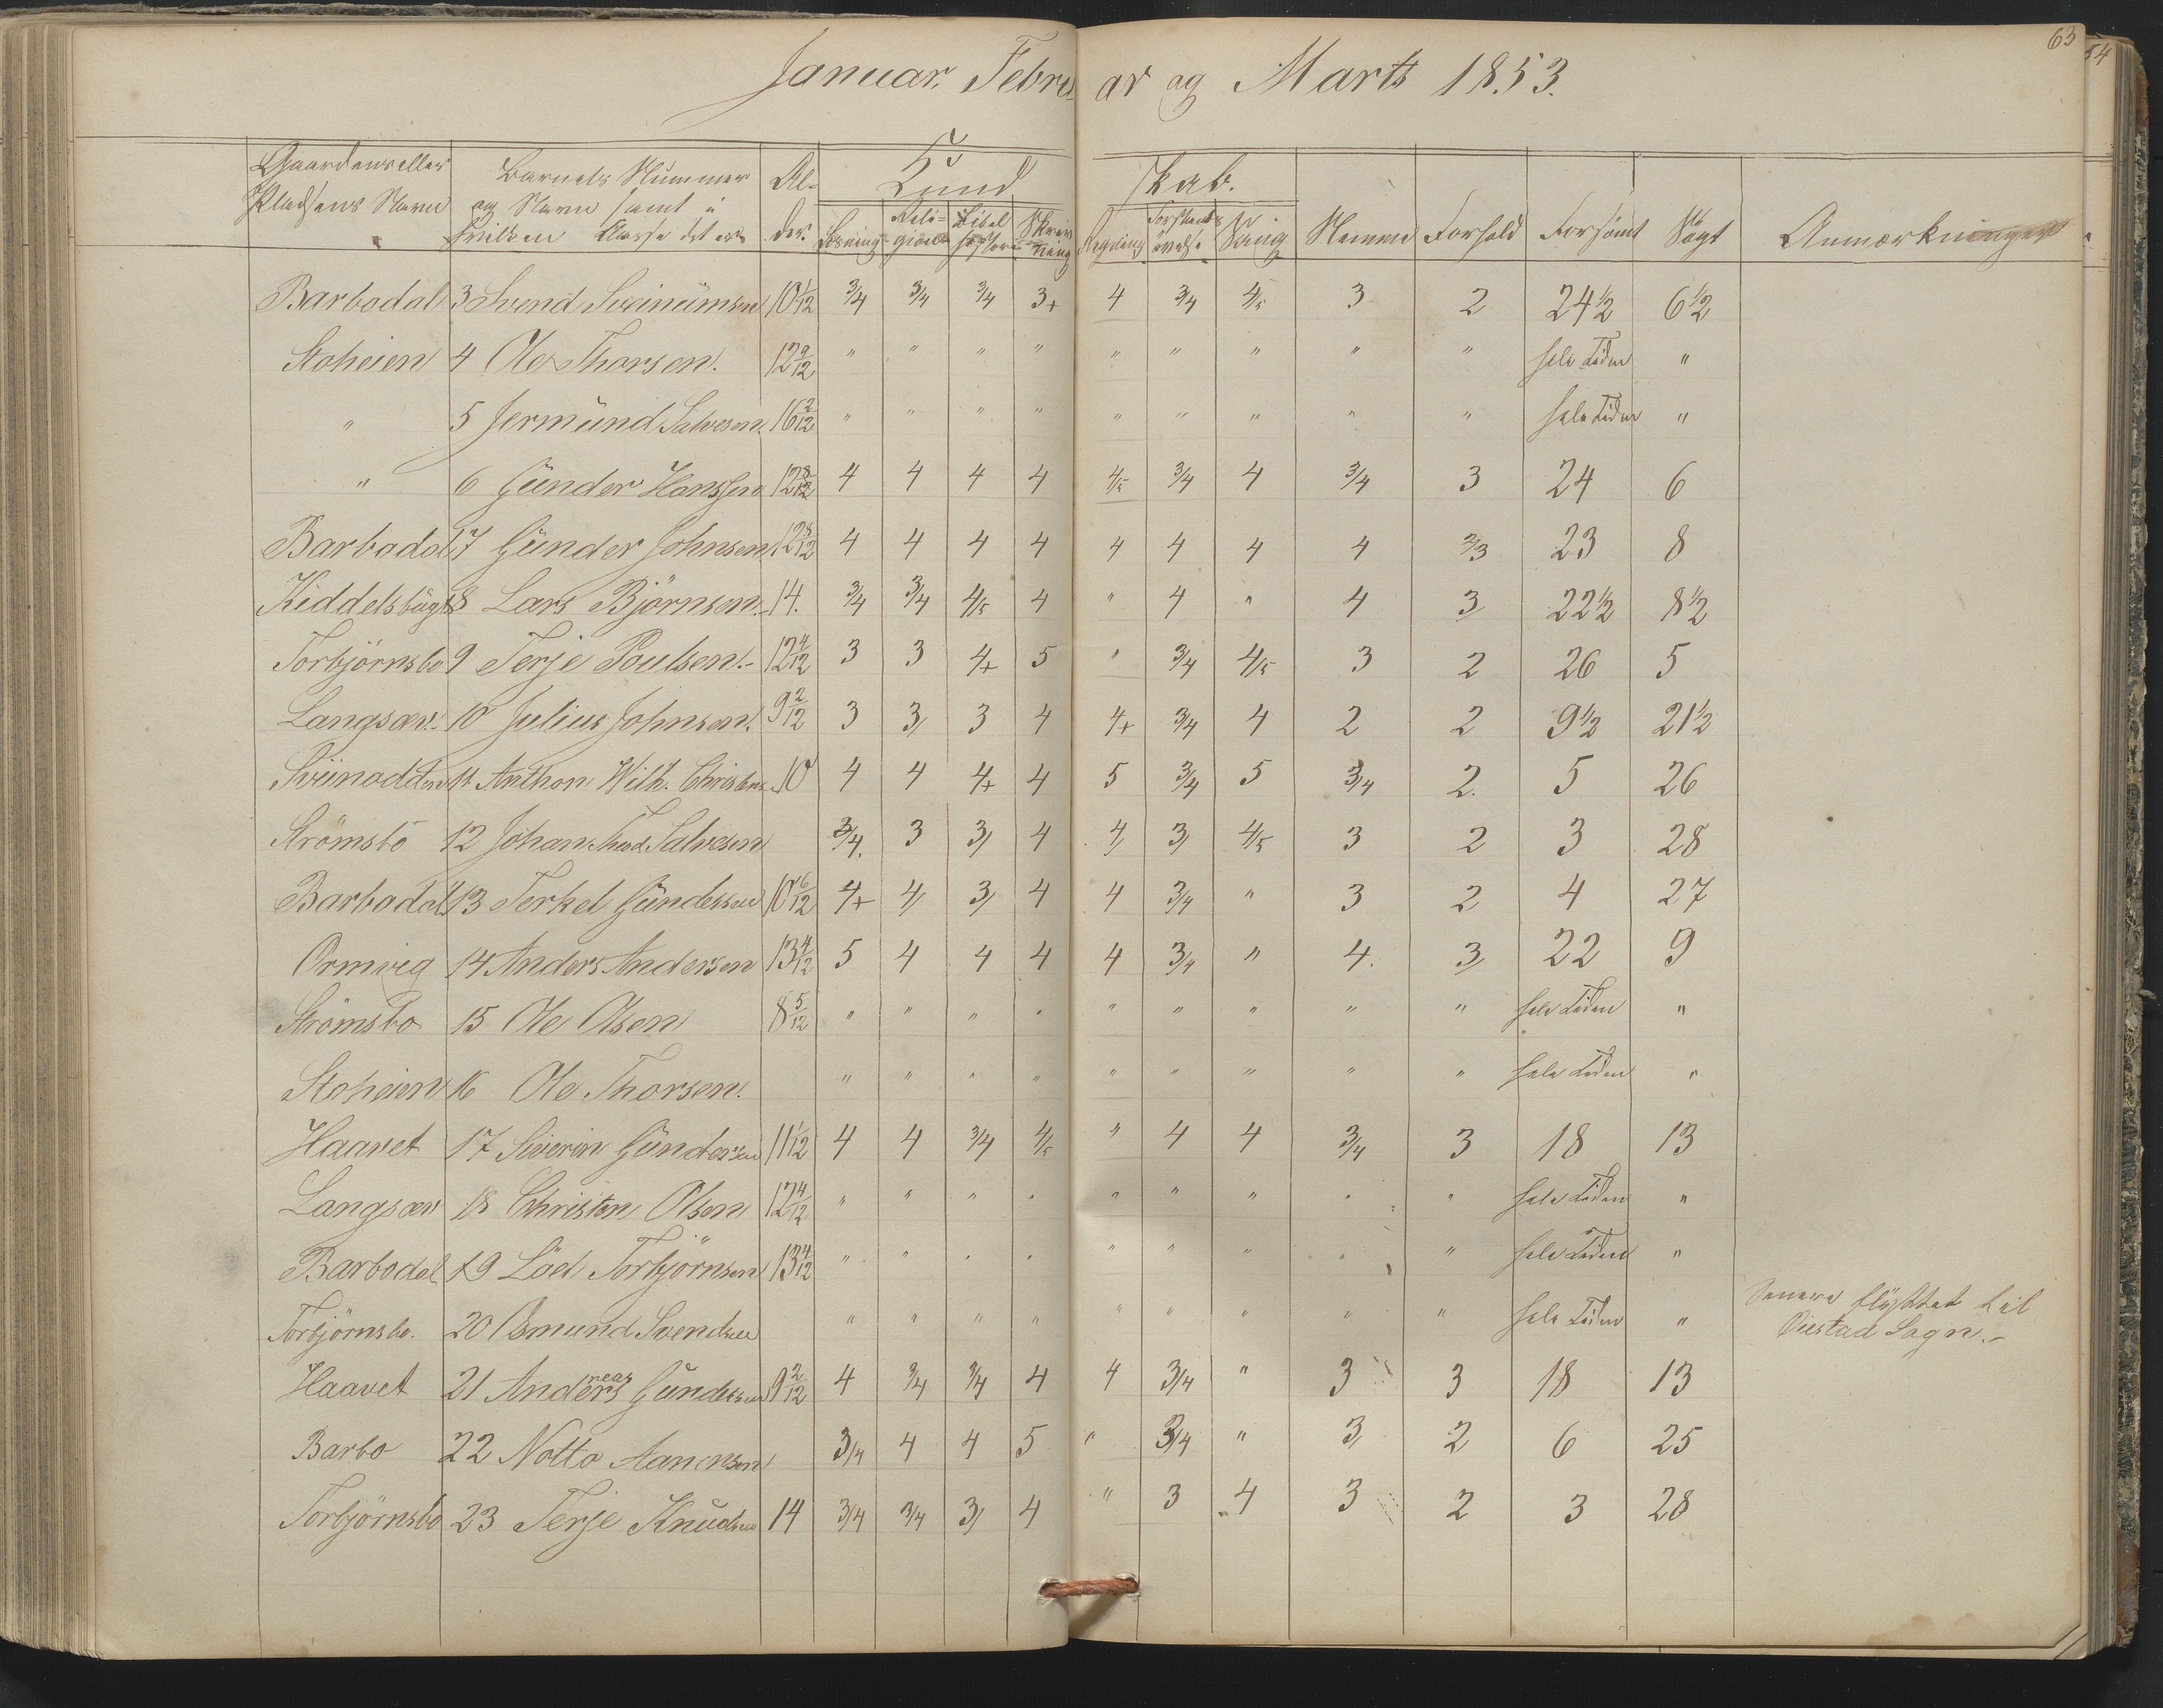 63
54
Januar, Februar og Marts 1853.
Gaardens eller Pladsens Navn | Barnets Nummer og Navn samt i hvilken Klasse det er | Alder. | Kundskab. | Nemme | Forhold | Forsømt | Søgt | Anmærkninger
Læsning | Religion | Bibelhistorie | Skrivning | Regning | Forstandsøvelse | Sang
Barbodal 3 Svend Sveinumsen 10 1/12 3/4 3/4 3/4 3+ 4 3/4 4/5 3 2 24 1/2 6 1/2
Stoheien 4 Ole Thorsen. 12 9/12 " " " " " " " " " hele Tiden "
" 5 Jermünd Salvesen. 16 2/12 " " " " " " " " " hele Tiden "
" 6 Günder Hanssen 12 8/12 4 4 4 4 4/5 3/4 4 3/4 3 24 6
Barbodal 7 Günder Johnsen 12 8/12 4 4 4 4 4 4 4 4 2/3 23 8
Kiddelsbügt 8 Lars Björnsen. 14. 3/4 3/4 4/5 4 " 4 " 4 3 22 1/2 8 1/2
Torbjörnsbo 9 Terje Poulsen.- 12 4/12 3 3 4+ 5 " 3/4 4/5 3 2 26 5
Langsæv.- 10 Julius Johnsen. 9 2/12 3 3 3 4 4+ 3/4 4 2 2 9 1/2 21 1/2
Sviinodden 11 Anthon Wilh. Christens. 10 4 4 4+ 4 5 3/4 5 3/4 2. 5 26
Strömsbo 12 Johan Thod. Salvesen 3/4. 3 3 4 4 3 4/5 3 2 3 28
Barbodal 13 Terkel Gündersen 10 6/12 4+ 4 3 4 4 3/4 " 3 2 4 27
Ormvig 14 Anders Andersen 13 4/12 5 4 4 4 4 3/4 " 4. 3 22 9
Strömsbo 15 Ole Olsen 8 5/12 " " " " " " " " " hele Tiden "
Stoheien 16 Ole Thorsen. " " " " " " " " " hele Tiden "
Haavet 17 Siverin Gündersen 11 1/12 4 4 3/4 4/5 " 4 4 3/4 3 18 13
Langsæv 18 Christen Olsen 12 4/12 " " " " " " " " " hele Tiden "
Barbodal 19 Löd Torbjörnsen 13 4/12 " " " " " " " " " hele Tiden "
Torbjörnsbo. 20 Osmund Svendsen " " " " " " " " " hele Tiden " Senere flÿttet til
Øiestad Sogn.-
Haavet 21 Andreas Gundersen 9 2/12 4 3/4 3/4 4 4 3/4 " 3 3 18 13
Barbo 22 Notto Aanonsen 3/4 4 4 5 " 3/4 " 3 2 6 25
Torbjörnsbo 23 Terje Knudsen 14 3/4 3/4 3 4 " 3 4 3 2 3 28